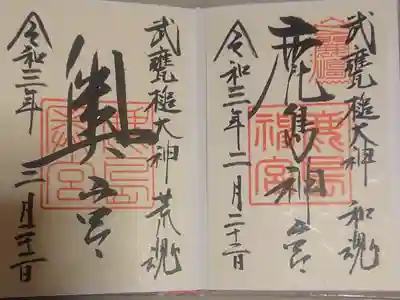 武甕槌大神 和魂
鹿島神宮
令和三年二月二十二日
武甕槌大神 荒魂
奥宮
令和三年二月二十二日
鹿島神宮